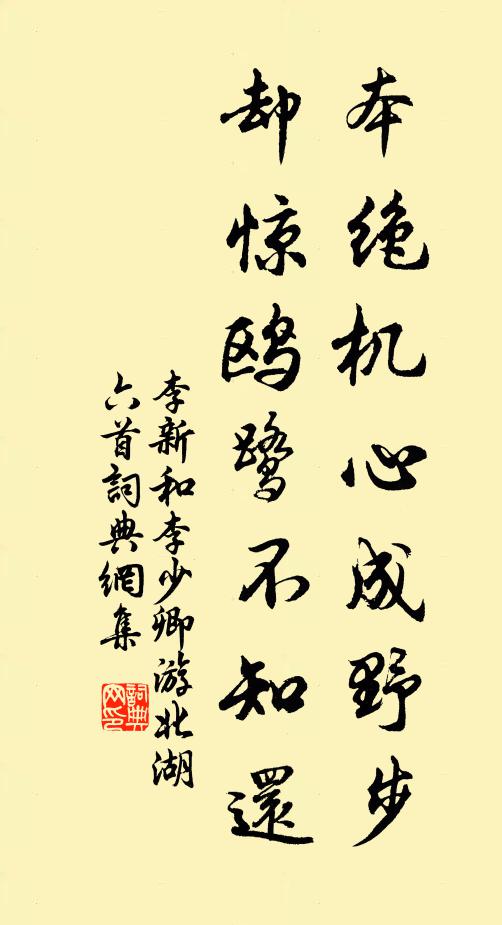 本绝机心成野步
却惊鸥鹭不知還
李新和李少卿游北湖
六首詞典網集
詞典网印